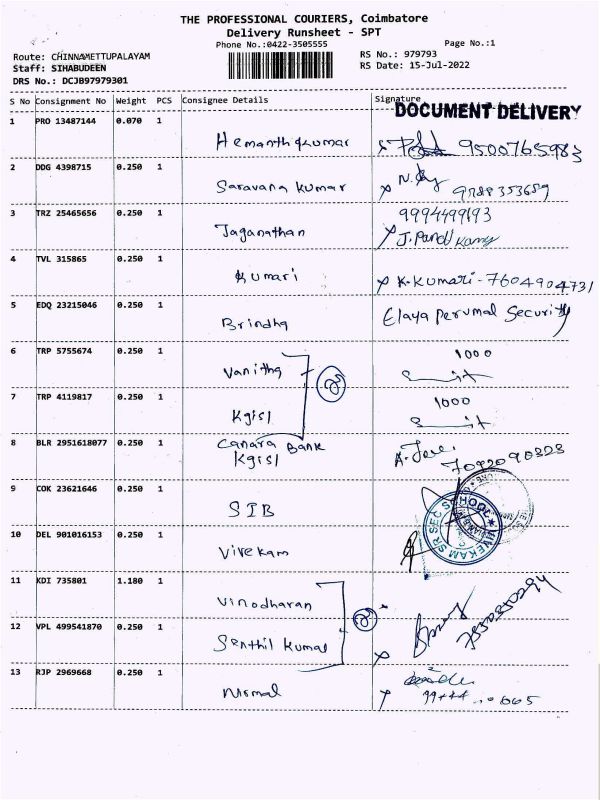 THE PROFESSIONAL COURIERS, Coimbatore
Delivery Runsheet - SPT
Phone No.:0422-3505555
Page No.:1
Route: CHINNAMETTUPALAYAM
RS No.: 979793
Staff: SIHABUDEEN
RS Date: 15-Jul-2022
DRS No.: DCJB97979301
S No Consignment No Weight PCS Consignee Details Signature
DOCUMENT DELIVERY
1 PRO 13487144 0.070 1
Hemanthkumar 9500765983
2 DDG 4398715 0.250 1
Saravana Kumar
3 TRZ 25465656 0.250 1
9994499193
Jaganathan
4 TVL 315865 0.250 1
Kumari K. Kumari - 7604904731
5 EDQ 23215046 0.250 1
Brindha Elaya Perumal Security
6 TRP 5755674 0.250 1
1000
Vanitha
7 TRP 4119817 0.250 1
1000
Kgisl
8 BLR 2951618077 0.250 1
Canara Bank
Kgisl 7092090323
9 COK 23621646 0.250 1
SIB
VIVEKAM SR SEC SCHOOL
10 DEL 901016153 0.250 1
Vivekam
11 KDI 735801 1.180 1
Vinodharan
12 VPL 499541870 0.250 1
Senthil Kumar
13 RJP 2969668 0.250 1
Nirmal